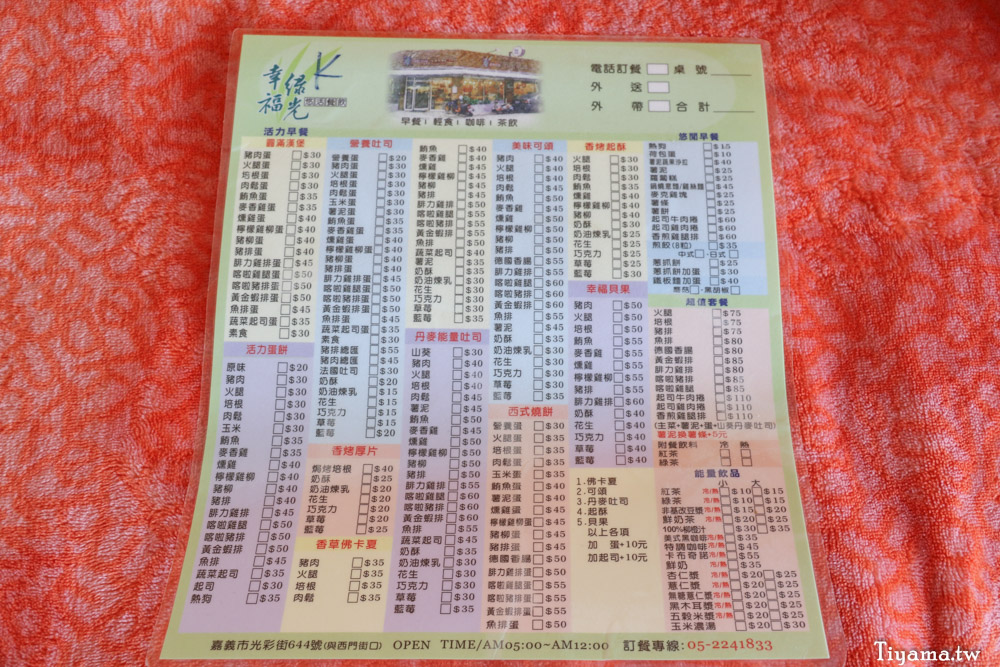 幸福
綠光
K
悠活餐飲
早餐 輕食 咖啡 茶飲
電話訂餐 桌號
外送
外帶 合計
活力早餐
圓滿漢堡
豬肉蛋 $30
火腿蛋 $30
培根蛋 $30
肉鬆蛋 $30
鮪魚蛋 $30
燻雞蛋 $40
檸檬雞柳蛋 $40
豬柳蛋 $40
豬排蛋 $40
腓力雞排蛋 $45
喀啦雞腿蛋 $50
喀啦豬排蛋 $50
黃金蝦排蛋 $50
魚排蛋 $45
蔬菜起司蛋 $35
素食 $30
營養吐司
營養蛋 $20
豬肉蛋 $30
火腿蛋 $30
培根蛋 $30
肉鬆蛋 $30
玉米蛋 $30
薯泥蛋 $30
鮪魚蛋 $30
麥香雞蛋 $35
燻雞蛋 $40
檸檬雞柳蛋 $40
豬柳蛋 $40
豬排蛋 $40
腓力雞排蛋 $45
喀啦雞腿蛋 $50
喀啦豬排蛋 $50
黃金蝦排蛋 $50
魚排蛋 $45
蔬菜起司蛋 $35
素食 $30
豬排總匯 $55
豬肉總匯 $45
法國吐司 $35
奶酥 $20
奶油煉乳 $15
花生 $15
巧克力 $15
草莓 $15
藍莓 $20
鮪魚 $40
麥香雞 $40
燻雞 $45
檸檬雞柳 $45
豬柳 $45
豬排 $45
腓力雞排 $50
喀啦雞腿 $55
喀啦豬排 $55
黃金蝦排 $55
魚排 $50
蔬菜起司 $40
薯泥 $35
奶酥 $35
奶油煉乳 $30
花生 $30
巧克力 $30
草莓 $30
藍莓 $30
美味可頌
豬肉 $40
火腿 $40
培根 $40
肉鬆 $40
鮪魚 $40
麥香雞 $40
燻雞 $50
檸檬雞柳 $50
豬柳 $50
豬排 $50
德國香腸 $50
腓力雞排 $55
喀啦雞腿 $60
喀啦豬排 $60
黃金蝦排 $60
魚排 $55
薯泥 $45
奶酥 $35
奶油煉乳 $35
花生 $35
巧克力 $35
草莓 $35
藍莓 $35
香烤起酥
火腿 $30
培根 $30
肉鬆 $30
鮪魚 $35
燻雞 $40
檸檬雞柳 $40
豬柳 $40
奶酥 $30
奶油煉乳 $25
花生 $25
巧克力 $25
草莓 $25
藍莓 $30
幸福貝果
豬肉 $50
火腿 $50
培根 $50
鮪魚 $50
麥香雞 $55
燻雞 $55
檸檬雞柳 $55
豬排 $55
腓力雞排 $60
奶酥 $40
花生 $40
巧克力 $40
草莓 $40
藍莓 $40
悠閒早餐
熱狗 $15
荷包蛋 $10
薯泥蔬果沙拉 $40
薯泥 $25
蘿蔔糕 $25
鍋燒意麵/雞絲麵 $45
麥克雞塊 $25
薯條 $25
薯餅 $25
起司牛肉捲 $60
起司雞肉捲 $60
香煎雞腿排 $60
煎餃(8粒) $35
中式 日式
蔥抓餅 $25
蔥抓餅加蛋 $30
鐵板麵加蛋 $40
蘑菇 黑胡椒
超值套餐
火腿 $75
培根 $75
豬肉 $75
魚排 $80
德國香腸 $80
黃金蝦排 $85
腓力雞排 $80
喀啦豬排 $85
喀啦雞腿 $85
起司牛肉捲 $110
起司雞肉捲 $110
香煎雞腿排 $110
(主菜+薯泥+蛋+山葵丹麥吐司)
薯泥換薯條+5元
附餐飲料 冷 熱
紅茶
綠茶
活力蛋餅
原味 $20
豬肉 $30
火腿 $30
培根 $30
肉鬆 $30
玉米 $30
鮪魚 $35
燻雞 $40
檸檬雞柳 $40
豬柳 $40
豬排 $40
腓力雞排 $45
喀啦雞腿 $50
喀啦豬排 $50
黃金蝦排 $50
魚排 $45
蔬菜起司 $35
起司 $30
熱狗 $35
香烤厚片
焗烤培根 $40
奶酥 $25
奶油煉乳 $20
花生 $20
巧克力 $20
草莓 $20
藍莓 $25
香草佛卡夏
豬肉 $35
火腿 $35
培根 $35
肉鬆 $35
丹麥能量吐司
山葵 $30
豬肉 $40
火腿 $40
培根 $40
肉鬆 $45
薯泥 $45
鮪魚 $45
麥香雞 $45
燻雞 $50
檸檬雞柳 $50
豬柳 $50
豬排 $50
腓力雞排 $55
喀啦雞腿 $60
喀啦豬排 $60
黃金蝦排 $60
魚排 $55
蔬菜起司 $45
奶酥 $35
奶油煉乳 $35
花生 $35
巧克力 $35
草莓 $35
藍莓 $35
西式燒餅
營養蛋 $30
火腿蛋 $35
培根蛋 $35
肉鬆蛋 $35
玉米蛋 $35
鮪魚蛋 $40
薯泥蛋 $40
燻雞蛋 $45
檸檬雞柳蛋 $45
豬柳蛋 $45
豬排蛋 $45
德國香腸 $45
腓力雞排蛋 $50
喀啦雞腿蛋 $55
喀啦豬排蛋 $55
黃金蝦排蛋 $55
魚排蛋 $50
1.佛卡夏
2.可頌
3.丹麥吐司
4.起酥
5.貝果
以上各項
加 蛋+10元
加起司+10元
能量飲品
小 大
紅茶 冷/熱 $10 $15
綠茶 冷/熱 $10 $15
非基改豆漿 冷/熱 $15 $20
鮮奶茶 冷/熱 $20 $25
100%柳橙汁 $30
美式黑咖啡 冷/熱 $35
特調咖啡 冷/熱 $45
卡布奇諾 冷/熱 $55
鮮奶 冷/熱 $35
杏仁漿 冷/熱 $20 $25
薏仁漿 冷/熱 $20 $25
無糖薏仁漿 冷/熱 $20 $25
黑木耳漿 冷/熱 $20 $25
五穀米漿 冷/熱 $20 $25
玉米濃湯 $20 $30
嘉義市光彩街644號(與西門街口) OPEN TIME/AM05:00~AM12:00 訂餐專線:05-2241833
Tiyama.tw